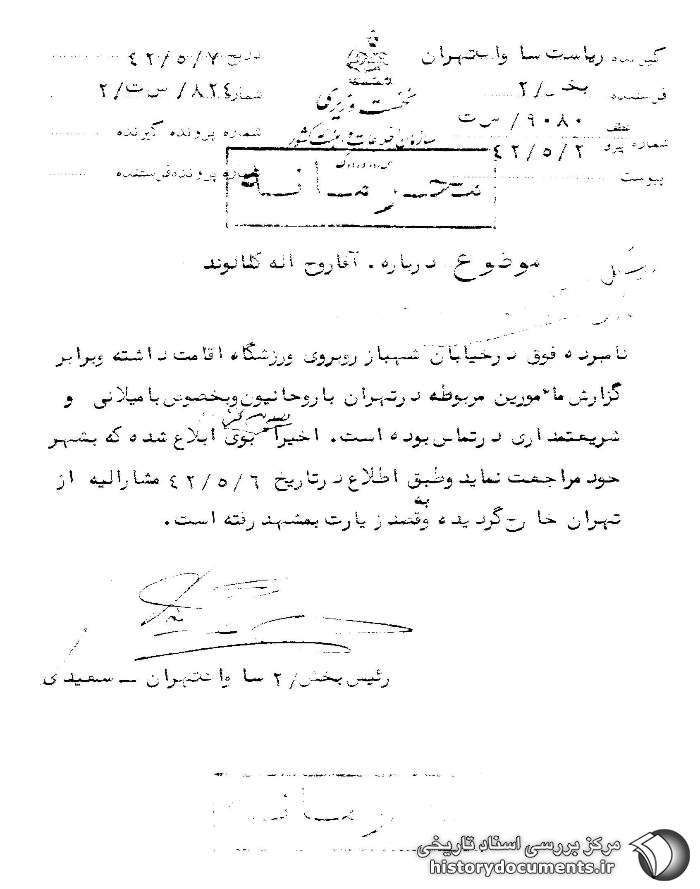 گیرنده ریاست ساواک تهران
فرستنده بخش/۲
عطف ۹۰۸۰/ س ت
شماره پیرو ۴۲/۵/۲
پیوست
نخست وزیری
سازمان اطلاعات و امنیت کشور
تاریخ ۴۲/۵/۷
شماره ۸۲۴/ س ت/۲
شماره پرونده گیرنده
شماره پرونده فرستنده
محرمانه
موضوع درباره . آقا روح اله کمالوند
نامبرده فوق در خیابان شهباز روبروی ورزشگاه اقامت داشته و برابر
گزارش مأمورین مربوطه در تهران با روحانیون و بخصوص با میلانی و
شریعتمداری در تماس بوده است . اخیراً بوی ابلاغ شده که بشهر
خود مراجعت نماید و طبق اطلاع در تاریخ ۴۲/۵/۶ مشارالیه از
تهران خارج گردیده و به قصد زیارت بمشهد رفته است .
رئیس بخش/۲ ساواک تهران ــ سعیدی
مرکز بررسی اسناد تاریخی
historydocuments.ir